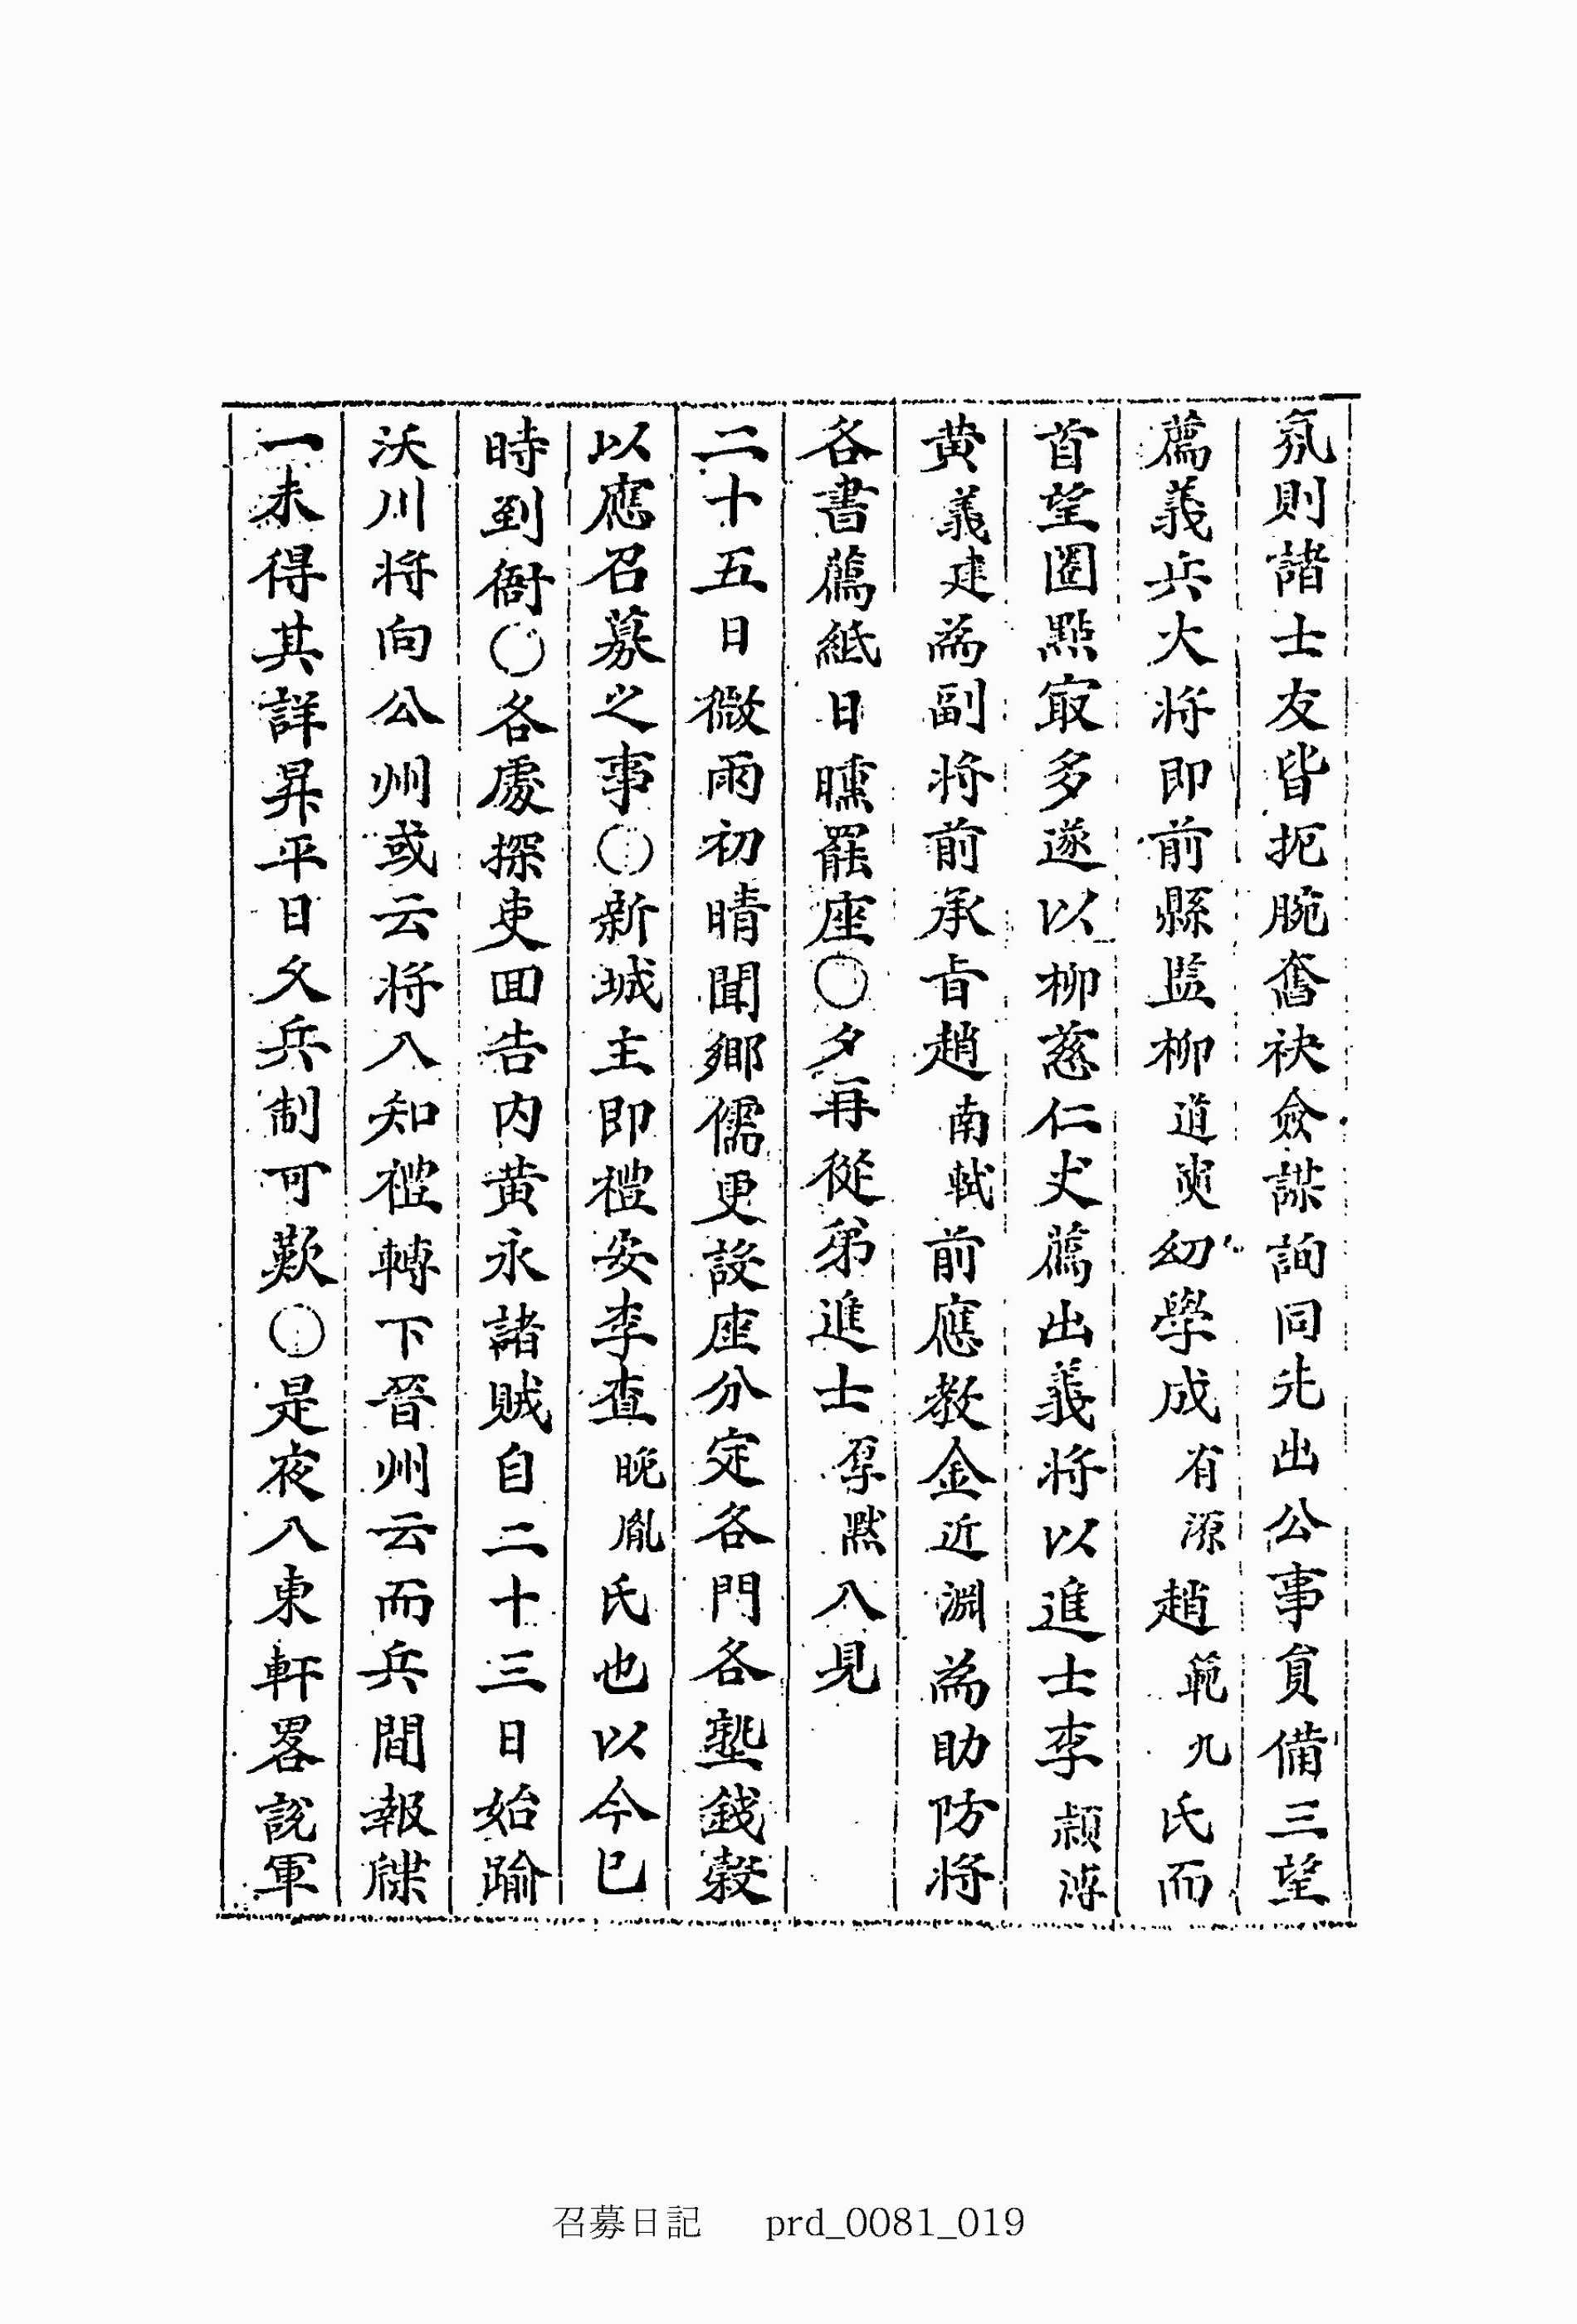 氛則諸士友皆扼腕奮袂僉謀詢同先出公事員備三望
薦義兵大將即前縣監柳道奭幼學成有源趙範九氏而
首望圈點㝡多遂以柳慈仁丈薦出義將以進士李潁溥
黃義建爲副將前承旨趙南軾前應教金近淵爲助防將
各書薦紙日曛罷座〇夕再從弟進士厚默入見
二十五日微雨初晴聞鄕儒更設座分定各門各塾錢穀
以應召募之事〇新城主即禮安李查晩胤氏也以今巳
時到衙〇各處探吏回告內黃永諸賊自二十三日始踰
沃川將向公州或云將入知禮轉下晉州云而兵間報牒
一未得其詳昇平日久兵制可歎〇是夜入東軒畧說軍
召募日記 prd_0081_019